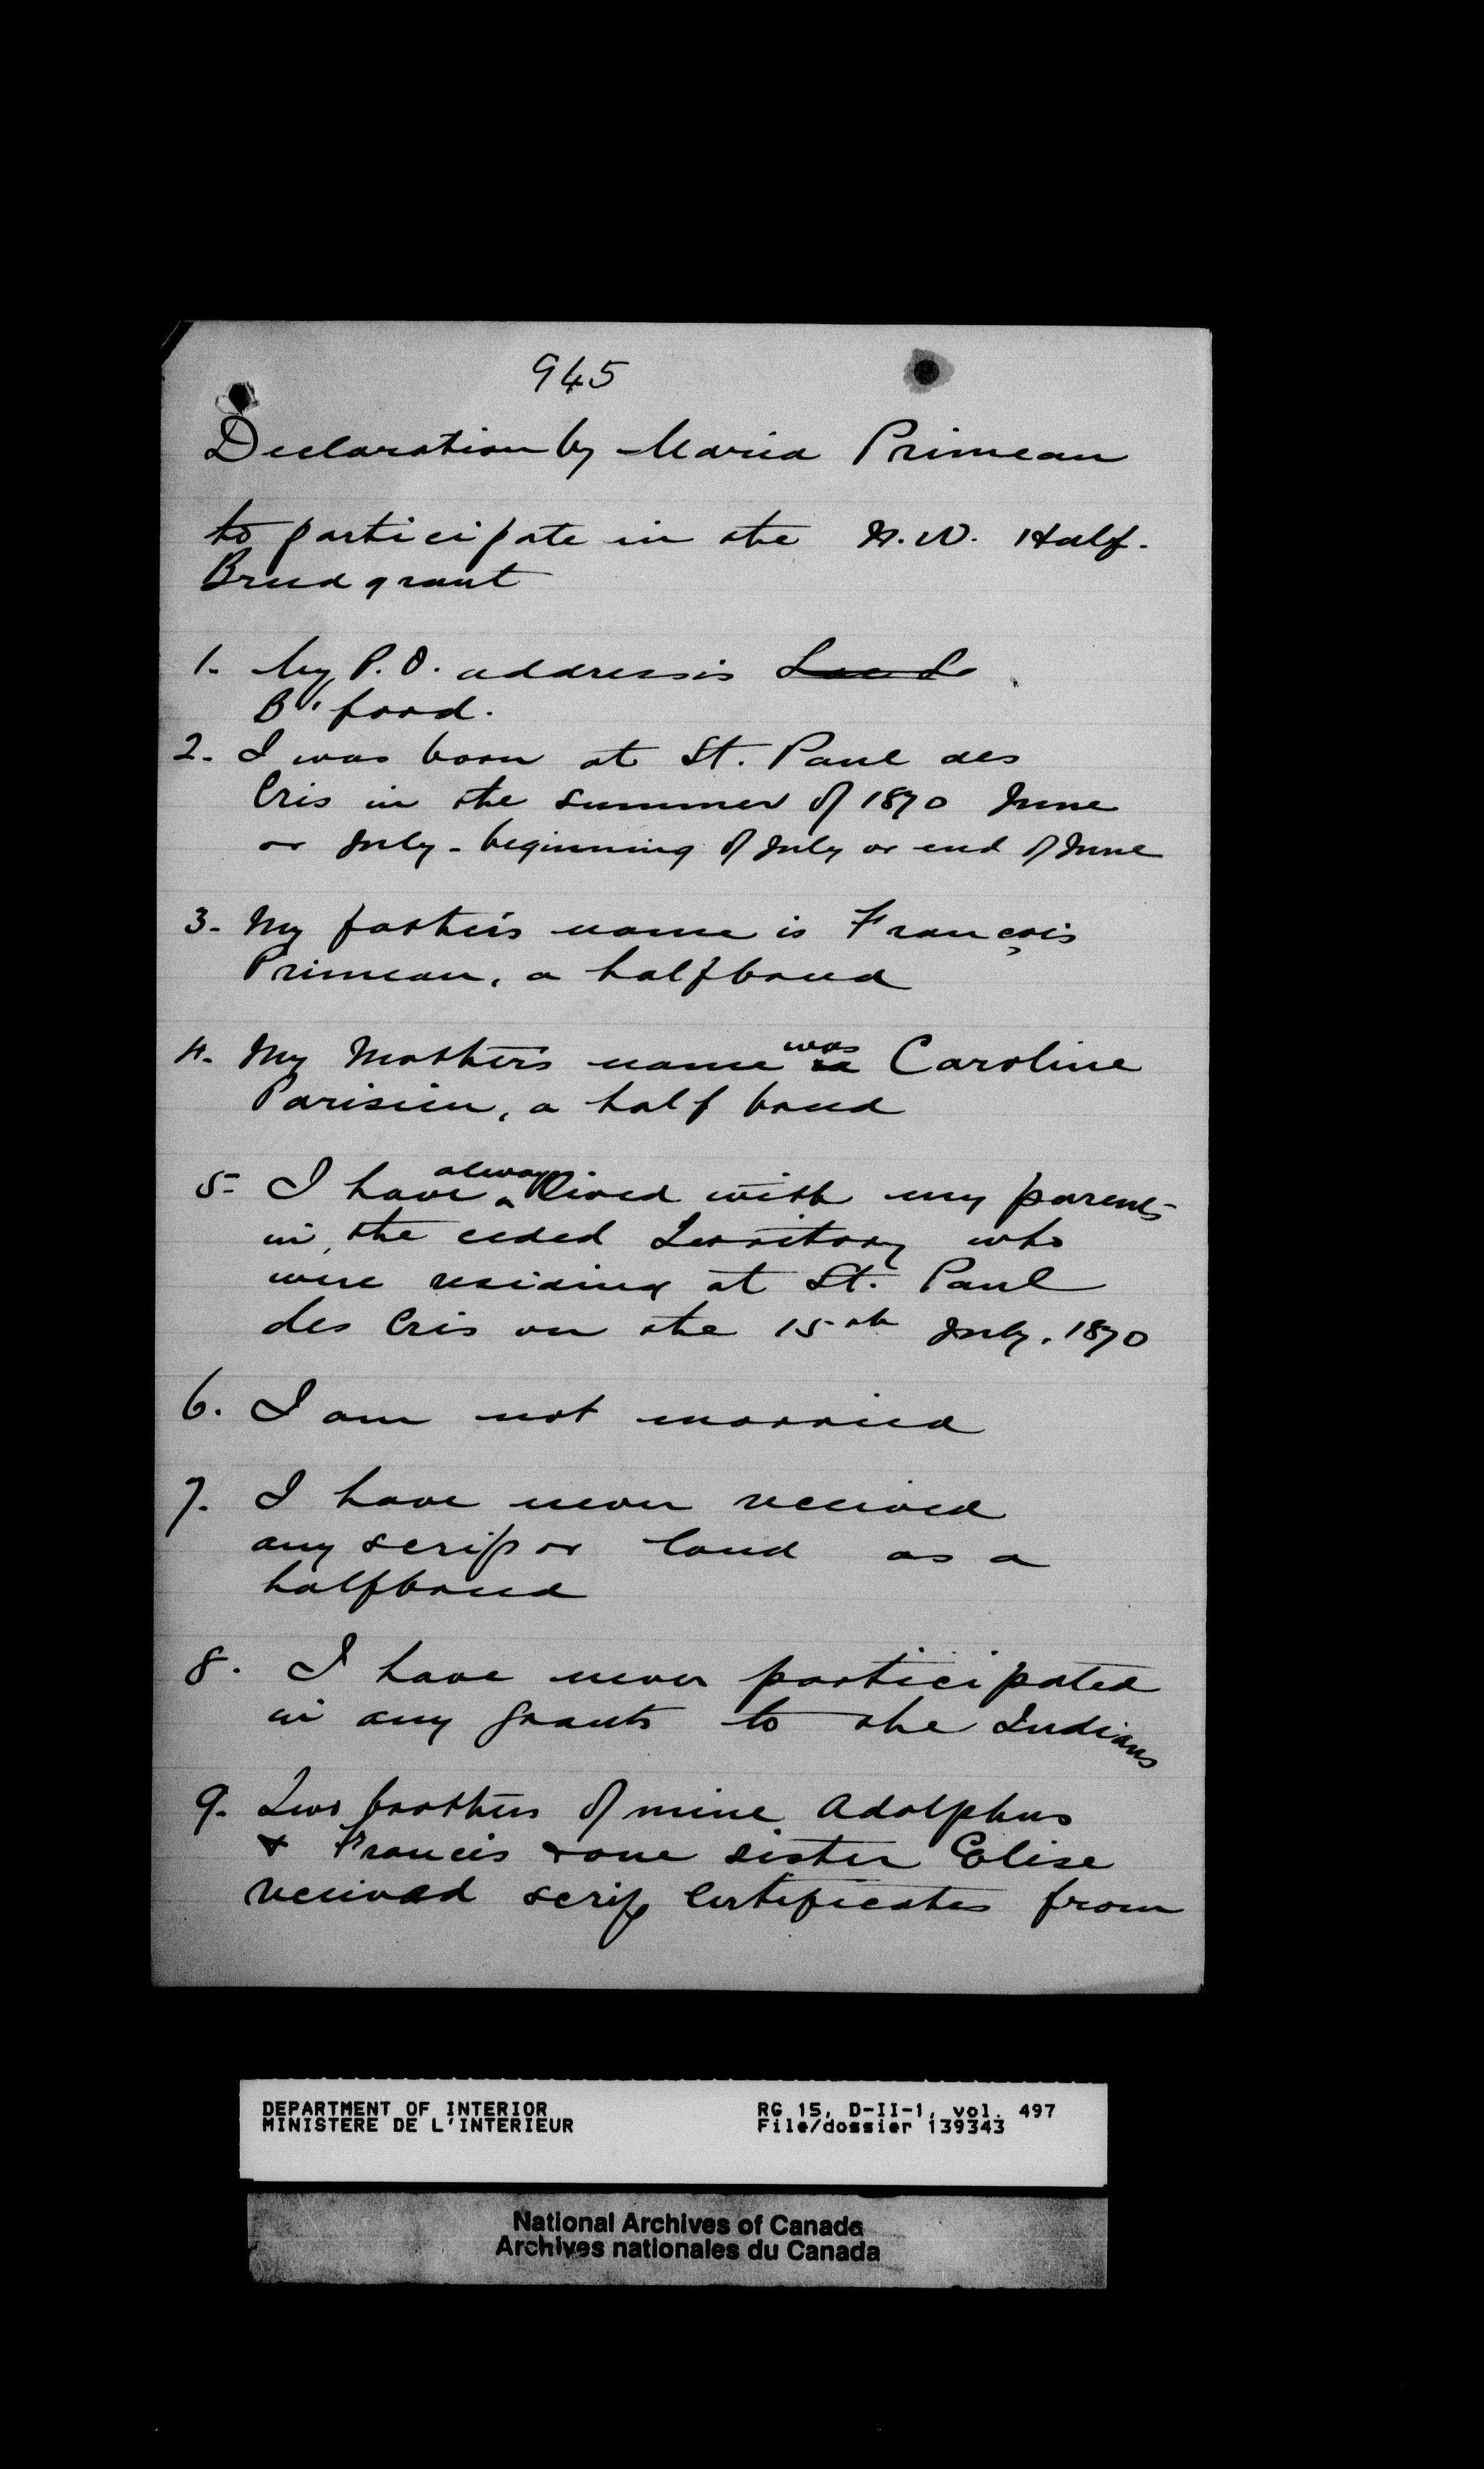 945
Declaration by Maria Primeau
to participate in the N.W. Half-
Breed grant
1. My P.O. address is
B'ford.
2. I was born at St. Paul des
Cris in the summer of 1870 June
or July - beginning of July or end of June
3. My father's name is François
Primeau, a halfbreed
4. My Mother's name was Caroline
Parisien, a half breed
5. I have always lived with my parents
in the ceded Territory who
were residing at St. Paul
des Cris on the 15th July, 1870
6. I am not married
7. I have never received
any scrip or land as a
halfbreed
8. I have never participated
in any grants to the Indians
9. Two brothers of mine Adolphus
& Francis & one sister Elise
received scrip certificates from
DEPARTMENT OF INTERIOR RG 15, D-II-1, vol. 497
MINISTERE DE L'INTERIEUR File/dossier 139343
National Archives of Canada
Archives nationales du Canada